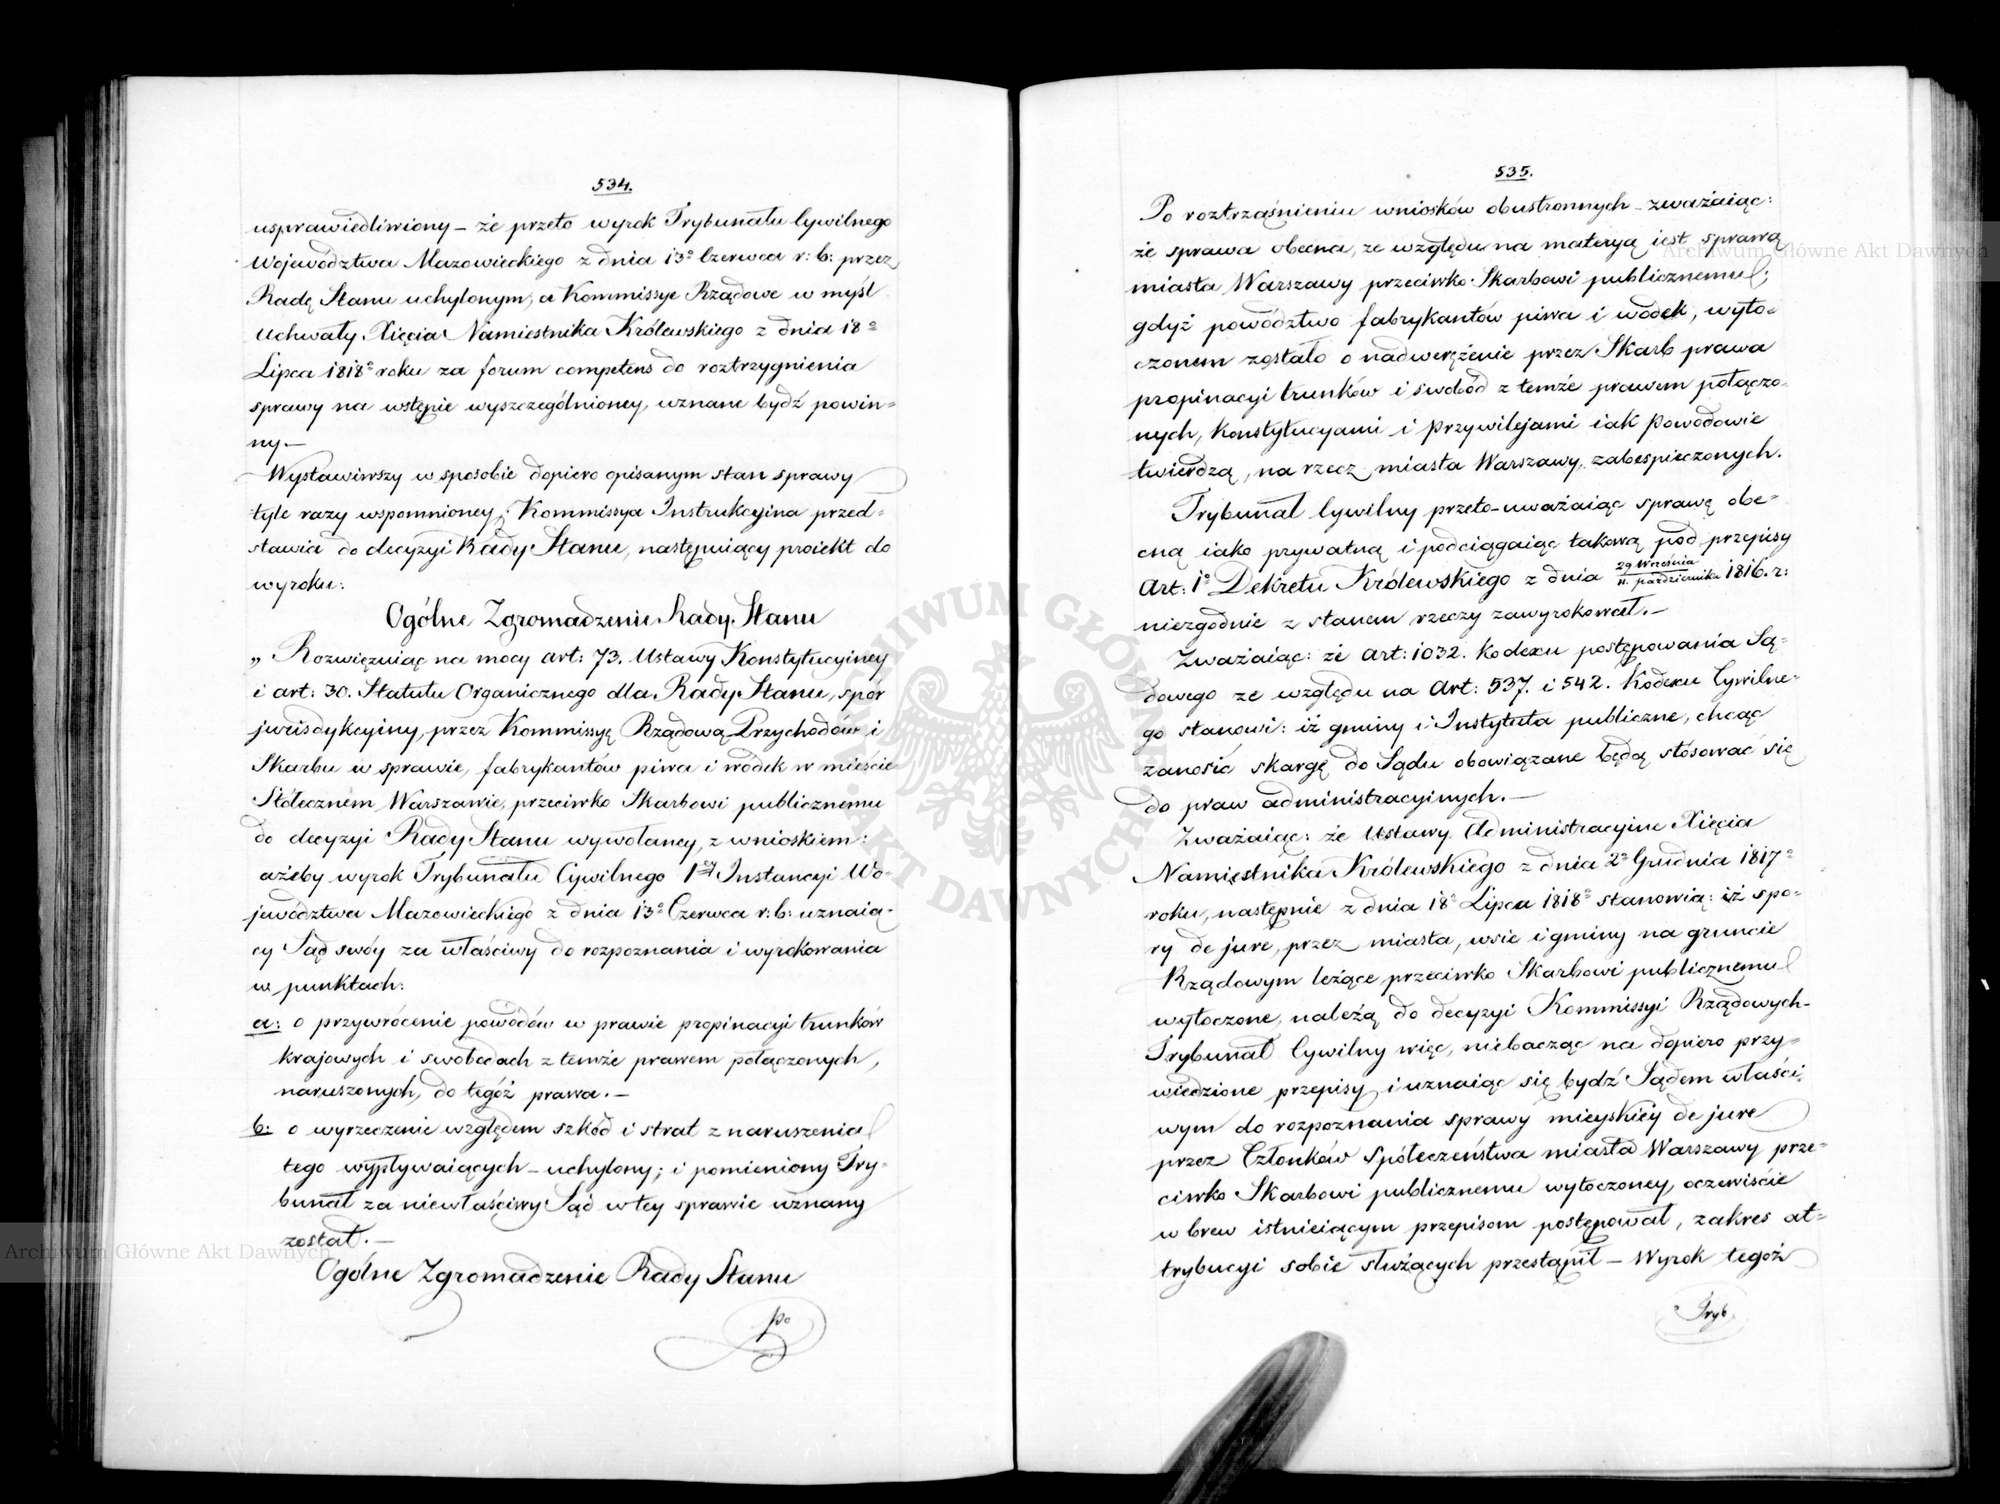 534.
usprawiedliwiony – że przeto wyrok Trybunału Cywilnego
Województwa Mazowieckiego z dnia 13º Czerwca r: b: przez
Radę Stanu uchylonym, a Kommissye Rządowe w myśl
Uchwały Xięcia Namiestnika Królewskiego z dnia 18º
Lipca 1818º roku za forum competens do roztrzygnienia
sprawy na wstępie wyszczególnioney, uznane bydź powin=
ny. –
Wystawiwszy w sposobie dopiero opisanym stan sprawy
tyle razy wspomnioney; Kommissya Instrukcyina przed=
stawia do decyzyi Rady Stanu, następuiący proiekt do
wyroku:
Ogólne Zgromadzenie Rady Stanu
„ Rozwięzuiąc na mocy art: 73. Ustawy Konstytucyiney
i art: 30. Statutu Organicznego dla Rady Stanu, spór
jurisdykcyiny, przez Kommissyę Rządową Przychodów i
Skarbu w sprawie, fabrykantów piwa i wódek w mieście
Stołecznem Warszawie, przeciwko Skarbowi publicznemu
do decyzyi Rady Stanu wywołaney, z wnioskiem:
ażeby wyrok Trybunału Cywilnego 1ey Instancyi Wo-
jewództwa Mazowieckiego z dnia 13º Czerwca r: b: uznaią-
cy Sąd swóy za właściwy do rozpoznania i wyrokowania
w punktach:
a: o przywrócenie powodów w prawie propinacyi trunków
krajowych i swobodach z temże prawem połączonych,
naruszonych, do tegóż prawa. –
b: o wyrzeczenie względem szkód i strat z naruszenia
tego wypływaiących – uchylony; i pomieniony Try-
bunał za niewłaściwy Sąd w tey sprawie uznany
został. –
Ogólne Zgromadzenie Rady Stanu
Po
535.
Po roztrząśnieniu wniosków obustronnych – zważaiąc:
że sprawa obecna, ze względu na materyą iest sprawą
miasta Warszawy przeciwko Skarbowi publicznemu;
gdyż powództwo fabrykantów piwa i wódek, wyto=
czonem zostało o nadwerężenie przez Skarb prawa
propinacyi trunków i swobód z temże prawem połączo-
nych, Konstytucyami i przywilejami iak Powodowie
twierdzą, na rzecz miasta Warszawy zabespieczonych.
Trybunał Cywilny przeto – uważaiąc sprawę obe-
cną iako prywatną i podciągaiąc takową pod przepisy
Art: 1º Dekretu Królewskiego z dnia 29 Września / 11. października 1816. r:
niezgodnie z stanem rzeczy zawyrokował. –
Zważaiąc: że art: 1032. Kodexu postępowania Są-
dowego ze względu na Art: 537. i 542. Kodexu Cywilne-
go stanowi: iż gminy i Instytuta publiczne, chcąc
zanosić skargę do Sądu obowiązane będą stósować się
do praw administracyinych. –
Zważaiąc: że Ustawy Administracyine Xięcia
Namiestnika Królewskiego z dnia 2º Grudnia 1817º
roku, następnie z dnia 18º Lipca 1818º stanowią: iż spo-
ry de jure, przez miasta, wsie i gminy na gruncie
Rządowym leżące przeciwko Skarbowi publicznemu
wytoczone, należą do decyzyi Kommissyi Rządowych –
Trybunał Cywilny więc, niebacząc na dopiero przy=
wiedzione przepisy i uznaiąc się bydź Sądem właści-
wym do rozpoznania sprawy mieyskiey de jure
przez Członków Społeczeństwa miasta Warszawy prze-
ciwko Skarbowi publicznemu wytoczoney, oczewiście
wbrew istnieiącym przepisom postępował, zakres at=
trybucyi sobie służących przestąpił – Wyrok tegóż
Tryb.
ARCHIWUM GŁÓWNE AKT DAWNYCH
Archiwum Główne Akt Dawnych
Archiwum Główne Akt Dawnych